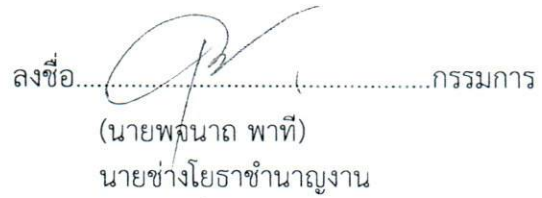 ลงชื่อ.....................................................กรรมการ
(นายพจนาถ พาที)
นายช่างโยธาชำนาญงาน